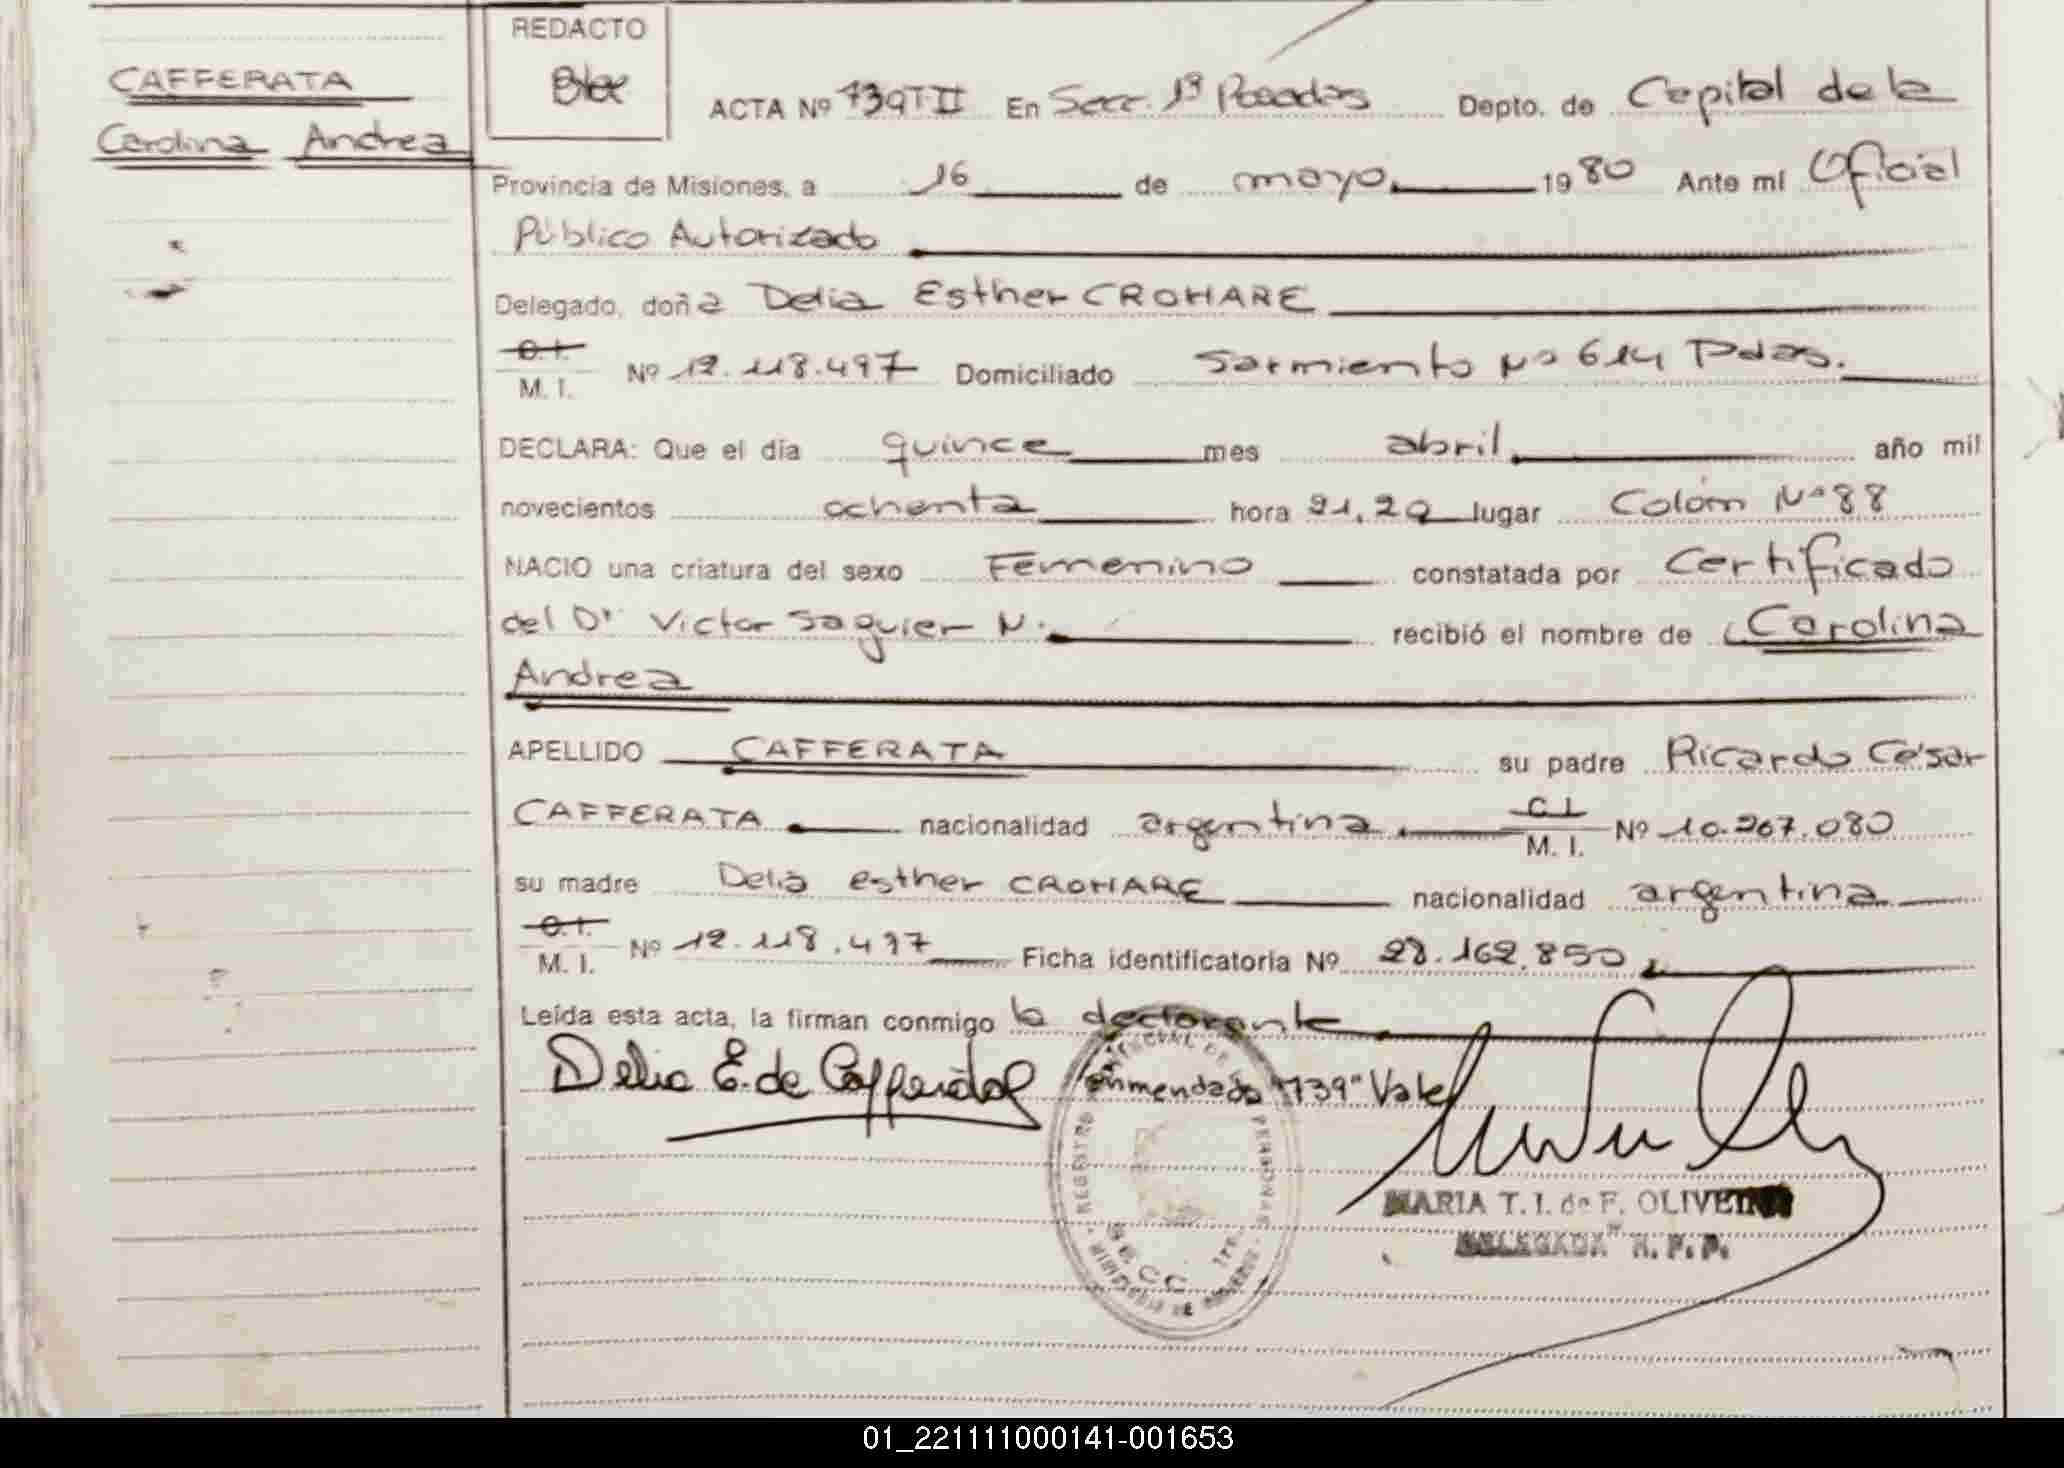 REDACTO
CAFFERATA
Carolina Andrea
ACTA Nº 739 T II En Secc. 1ª Posadas Depto. de Capital de la
Provincia de Misiones, a 16 de mayo 1980 Ante mí Oficial
Público Autorizado
Delegado, doña Delia Esther CROHARE
C.I.
M. I. Nº 12.118.497 Domiciliado Sarmiento Nº 614 Pdas.
DECLARA: Que el día quince mes abril año mil
novecientos ochenta hora 21,20 lugar Colón Nº 88
NACIO una criatura del sexo Femenino constatada por Certificado
del Dr Victor Saguier N. recibió el nombre de Carolina
Andrea
APELLIDO CAFFERATA su padre Ricardo César
CAFFERATA nacionalidad argentina C.I.
M. I. Nº 10.267.080
su madre Delia esther CROHARE nacionalidad argentina
C.I.
M. I. Nº 12.118.497 Ficha identificatoria Nº 28.162.850
Leída esta acta, la firman conmigo la declarante
Delia E. de Cafferata
enmendado "739" Vale
MARIA T. I. de F. OLIVEIRA
DELEGADA R. P. P.
REGISTRO DE PERSONAS
SECC. 1ra.
MINISTERIO DE
01_221111000141-001653